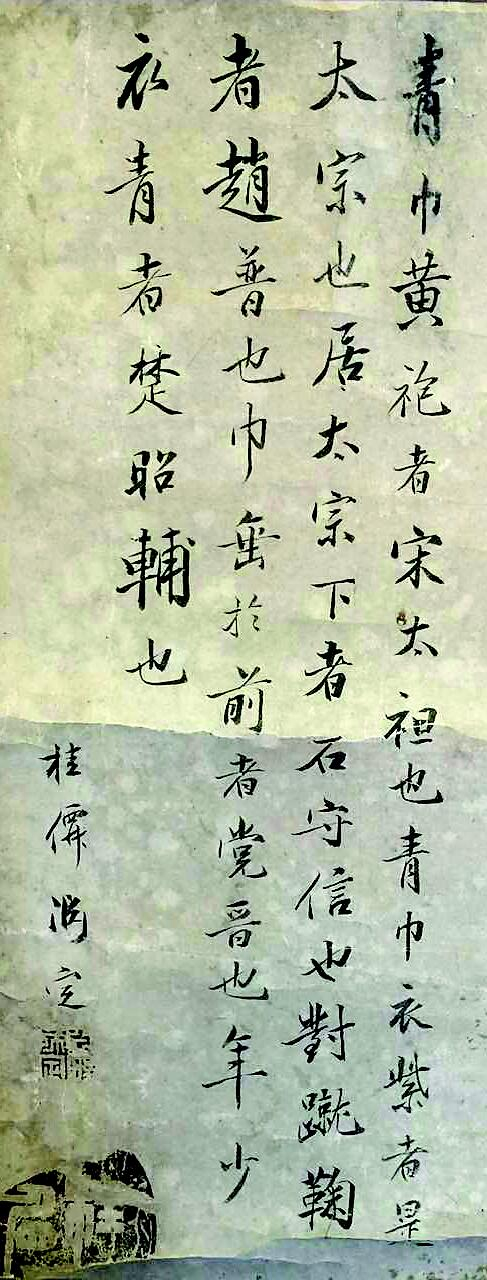 青巾黄袍者宋太祖也青巾衣紫者是
太宗也居太宗下者石守信也對蹴鞠
者趙普也巾垂於前者党晋也年少
衣青者楚昭輔也
桂僊淵定